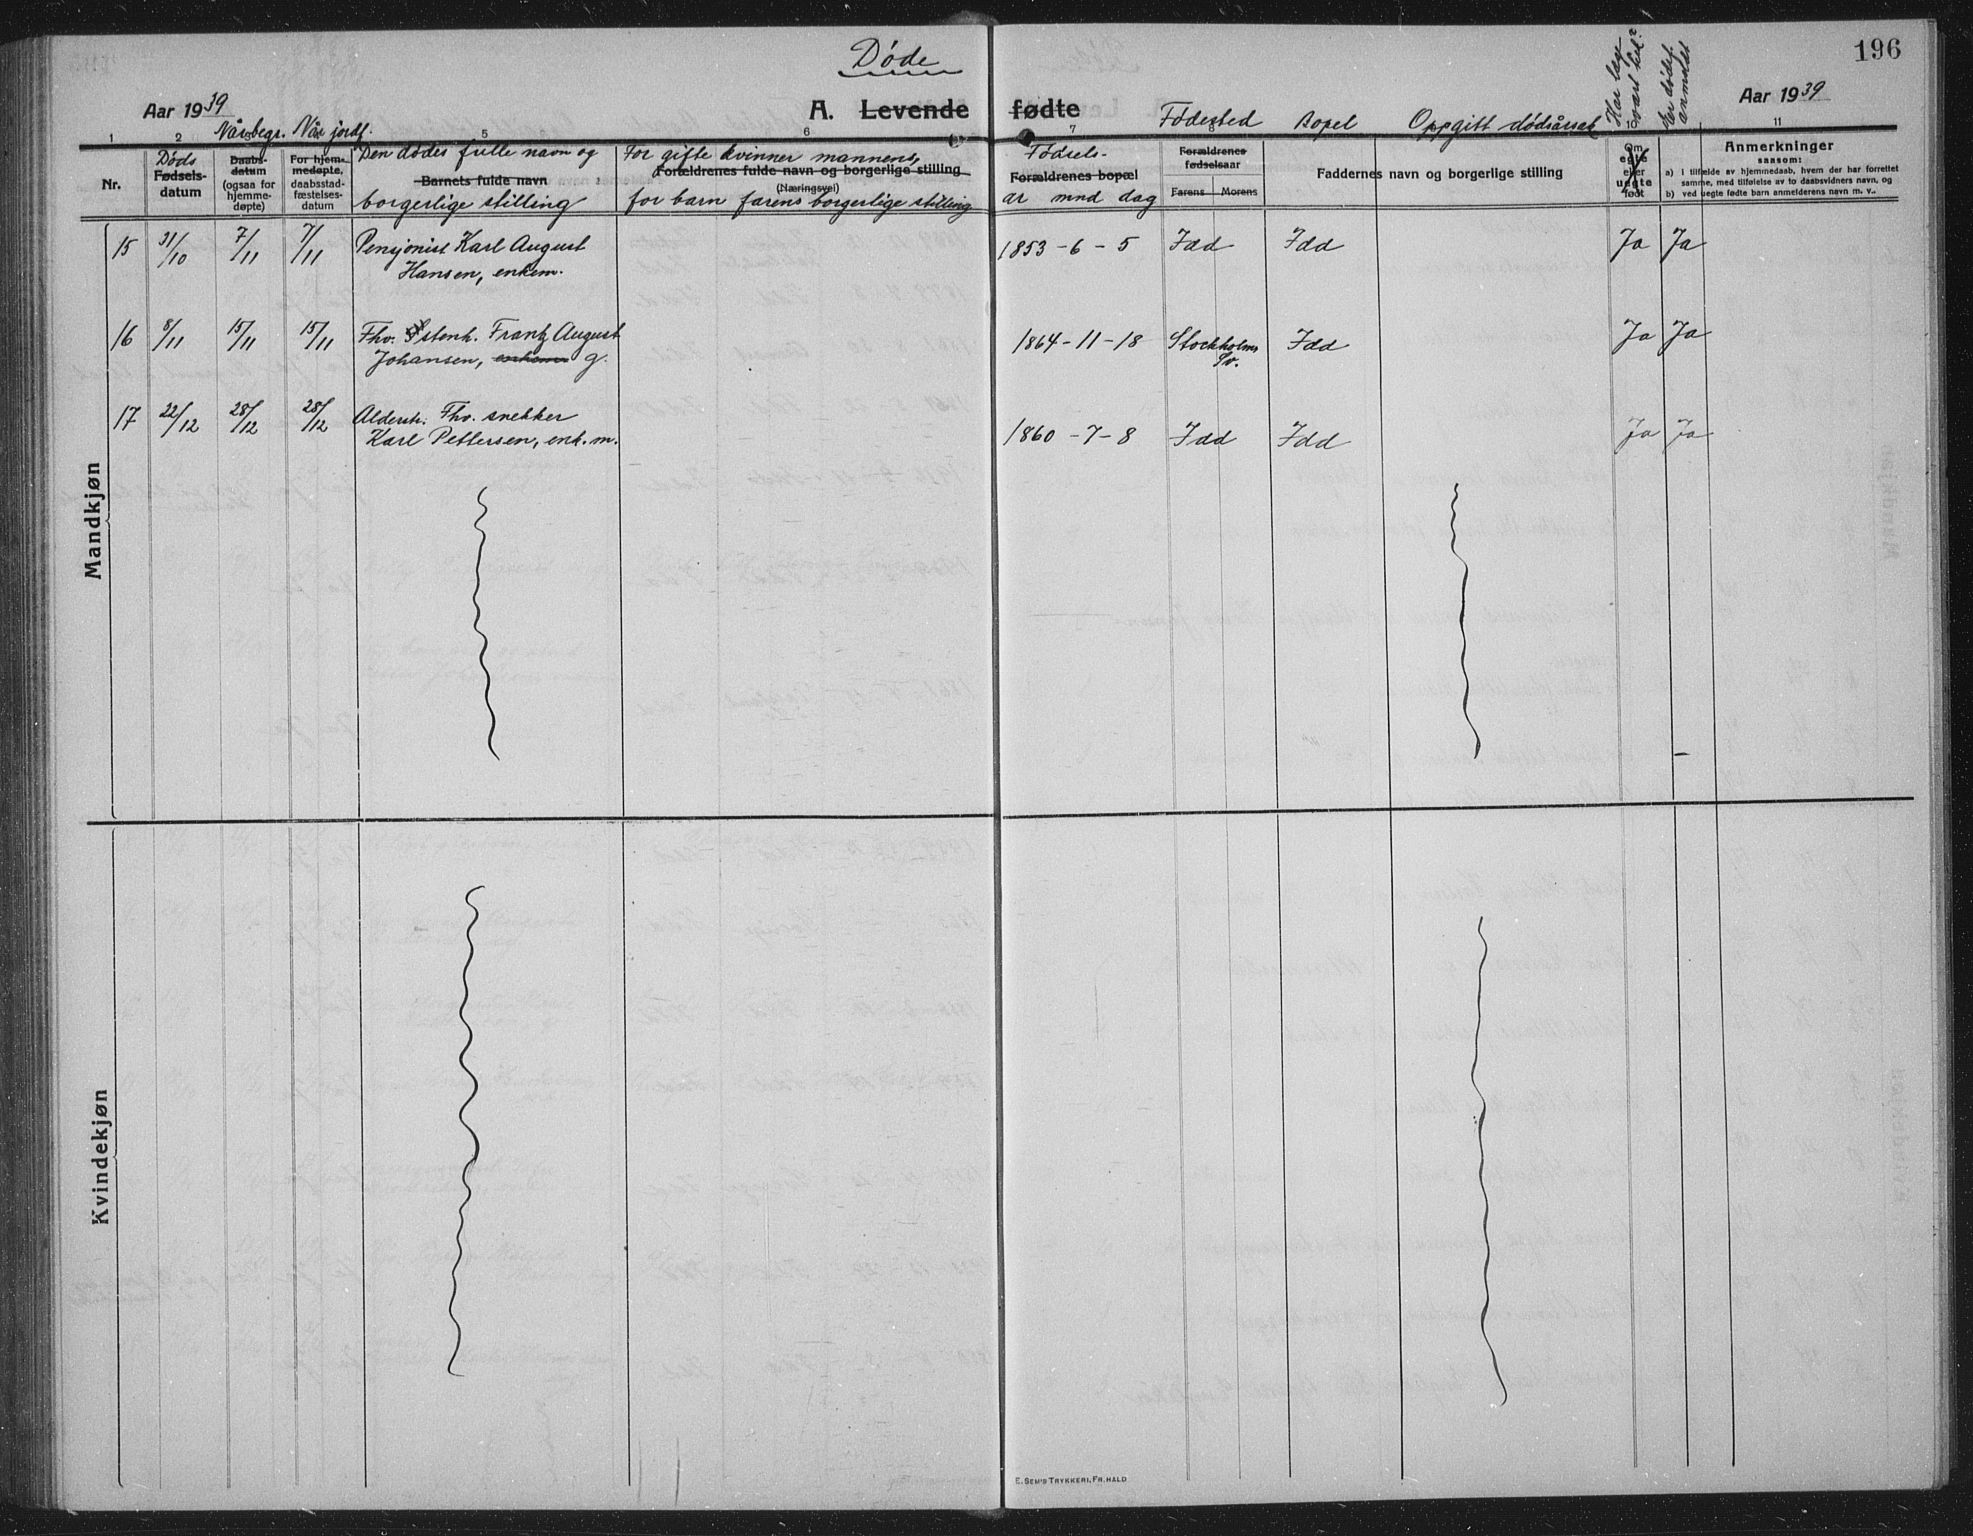 Døde
196
Aar 1939 A. Levende fødte Aar 1939
Når begr. Når jordf. Fødested Bopel Oppgitt dødsårsak
1 2 5 6 7 8 10 11
Har læge vært hed?
Er dødsf. anmeldt
Nr.
Døds
Fødsels-
datum
Daabs-
datum
(ogsaa for
hjemme-
døpte)
For hjem-
medøpte,
daabsstad-
fæstelses-
datum
Den dødes fulle navn og
Barnets fulde navn
borgerlige stilling
For gifte kvinner mannens,
Forældrenes fulde navn og borgerlige stilling
(Næringsvei)
for barn farens borgerlige stilling
Fødsels-
Forældrenes bopæl
år mnd dag
Forældrenes
fødselsaar
Farens Morens
Faddernes navn og borgerlige stilling
Om
egte
eller
uegte
født
Anmerkninger
saasom:
a) I tilfælde av hjemmedaab, hvem der har forrettet
samme, med tilføielse av to daabsvidners navn, og
b) ved uegte fødte barn anmelderens navn m. v..
Mandkjøn
15 31/10 7/11 7/11 Pensjonist Karl August 1853 - 6 - 5 Idd Idd Ja Ja
Hansen, enkem.
16 8/11 15/11 15/11 Fhv. Stenh. Frantz August 1864 - 11 - 18 Stockholms Idd Ja Ja
Johansen, enkem g. Sv.
17 22/12 28/12 28/12 Alderstr. Fhv. snekker
Karl Pettersen, enk.m. 1860 - 7 - 8 Idd Idd Ja Ja
Kvindekjøn
E. SEM'S TRYKKERI, FR.HALD